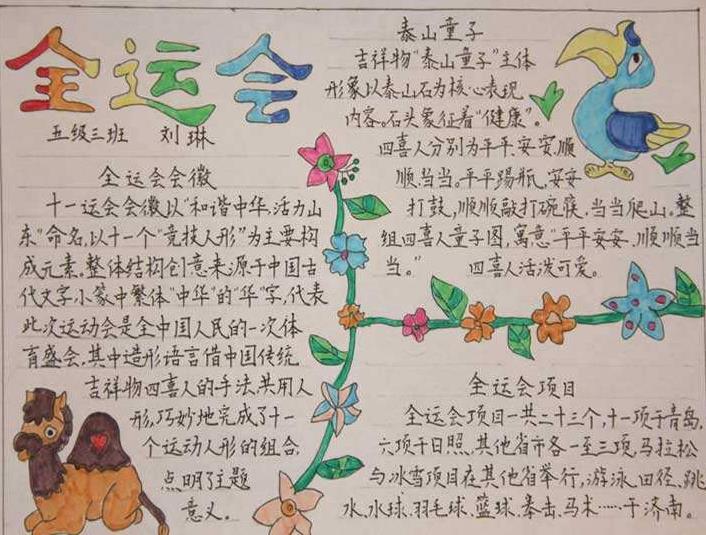 全运会
五级三班 刘琳
全运会会徽
十一运会会徽以“和谐中华,活力山
东”命名,以十一个“竞技人形”为主要构
成元素。整体结构创意来源于中国古
代文字小篆中繁体“中华”的“华”字,代表
此次运动会是全中国人民的一次体
育盛会,其中造形语言借中国传统
吉祥物四喜人的手法,共用人
形,巧妙地完成了十一
个运动人形的组合,
点明了主题
意义。
泰山童子
吉祥物“泰山童子”主体
形象以泰山石为核心表现
内容。石头象征着“健康”。
四喜人分别为平平、安安、顺
顺、当当。平平踢瓶,安安
打鼓,顺顺敲打碗筷,当当爬山。整
组四喜人童子图,寓意“平平安安、顺顺当
当。” 四喜人活泼可爱。
全运会项目
全运会项目一共二十三个,十一项于青岛,
六项于日照,其他省市各一至三项,马拉松
与冰雪项目在其他省举行,游泳、田径、跳
水、水球、羽毛球、篮球、拳击、马术……于济南。